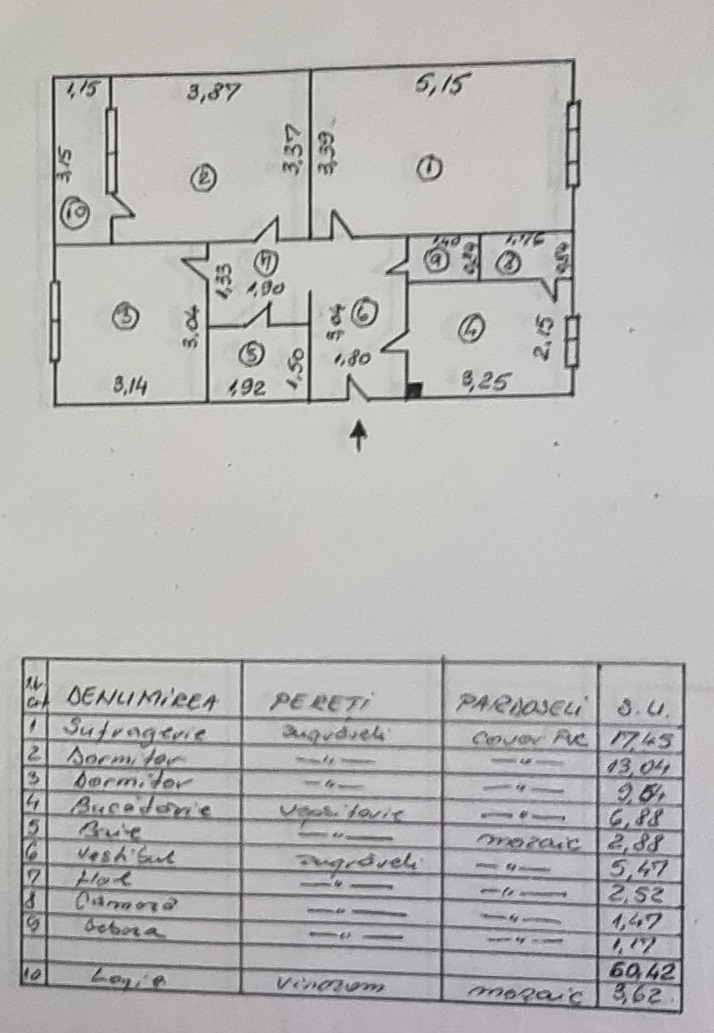 1,15 3,87 5,15
3,15 3,37 3,39
10 2 1
1,40 1,76
7 9 8
1,33 1,90
3 3,04 6 4 2,15
5 1,80
3,14 1,92 1,50 3,25
Nr. crt DENUMIREA PEREȚI PARDOSELI S.U.
1 Sufragerie zugrăveli Covor PVC 17,45
2 Dormitor —"— —"— 13,04
3 Dormitor —"— —"—
4 Bucătărie Vopsitorie —"— 6,88
5 Baie —"— mozaic 2,88
6 Vestibul zugrăveli —"— 5,47
7 Hol —"— —"— 2,52
8 Cămară —"— —"— 1,47
9 Debara —"— —"— 1,17
60,42
10 Logie vinarom mozaic 3,62